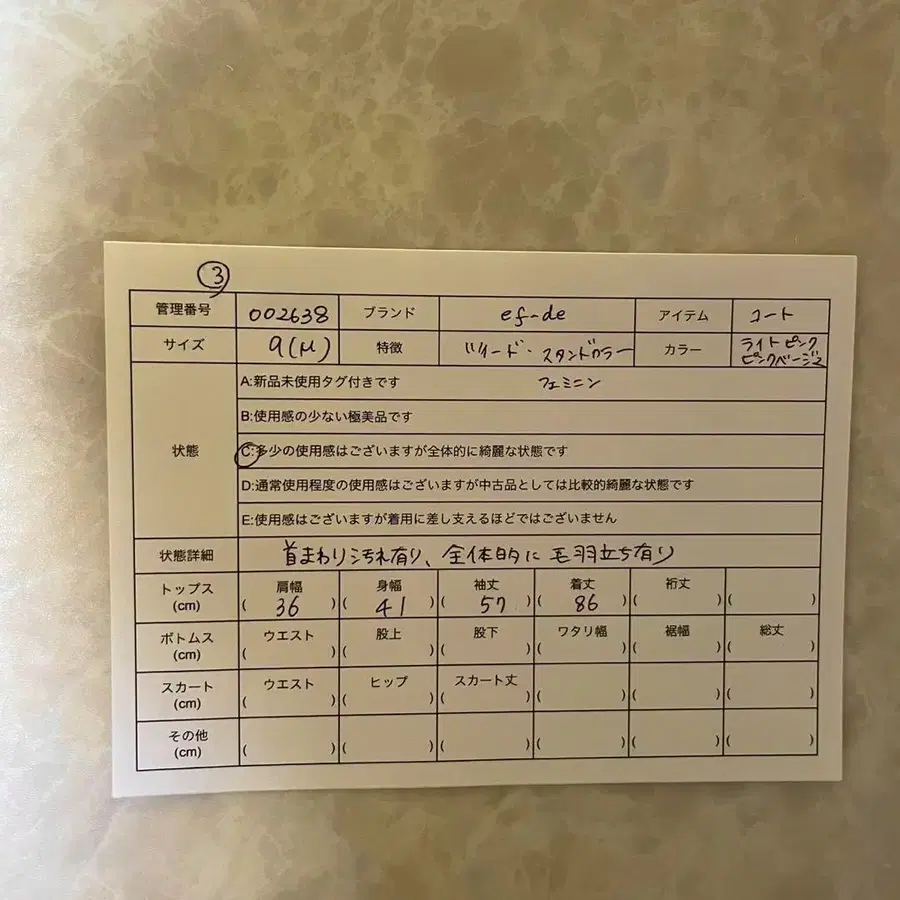 ③
管理番号 002638 ブランド ef-de アイテム コート
サイズ 9(M) 特徴 ツイード・スタンドカラー カラー ライトピンク
ピンクベージュ
A:新品未使用タグ付きです フェミニン
B:使用感の少ない極美品です
状態 C:多少の使用感はございますが全体的に綺麗な状態です
D:通常使用程度の使用感はございますが中古品としては比較的綺麗な状態です
E:使用感はございますが着用に差し支えるほどではございません
状態詳細 首まわり汚れ有り、全体的に毛羽立ち有り
トップス 肩幅 身幅 袖丈 着丈 裄丈
(cm) ( 36 ) ( 41 ) ( 57 ) ( 86 ) ( ) ( )
ボトムス ウエスト 股上 股下 ワタリ幅 裾幅 総丈
(cm) ( ) ( ) ( ) ( ) ( ) ( )
スカート ウエスト ヒップ スカート丈
(cm) ( ) ( ) ( ) ( ) ( ) ( )
その他
(cm) ( ) ( ) ( ) ( ) ( ) ( )